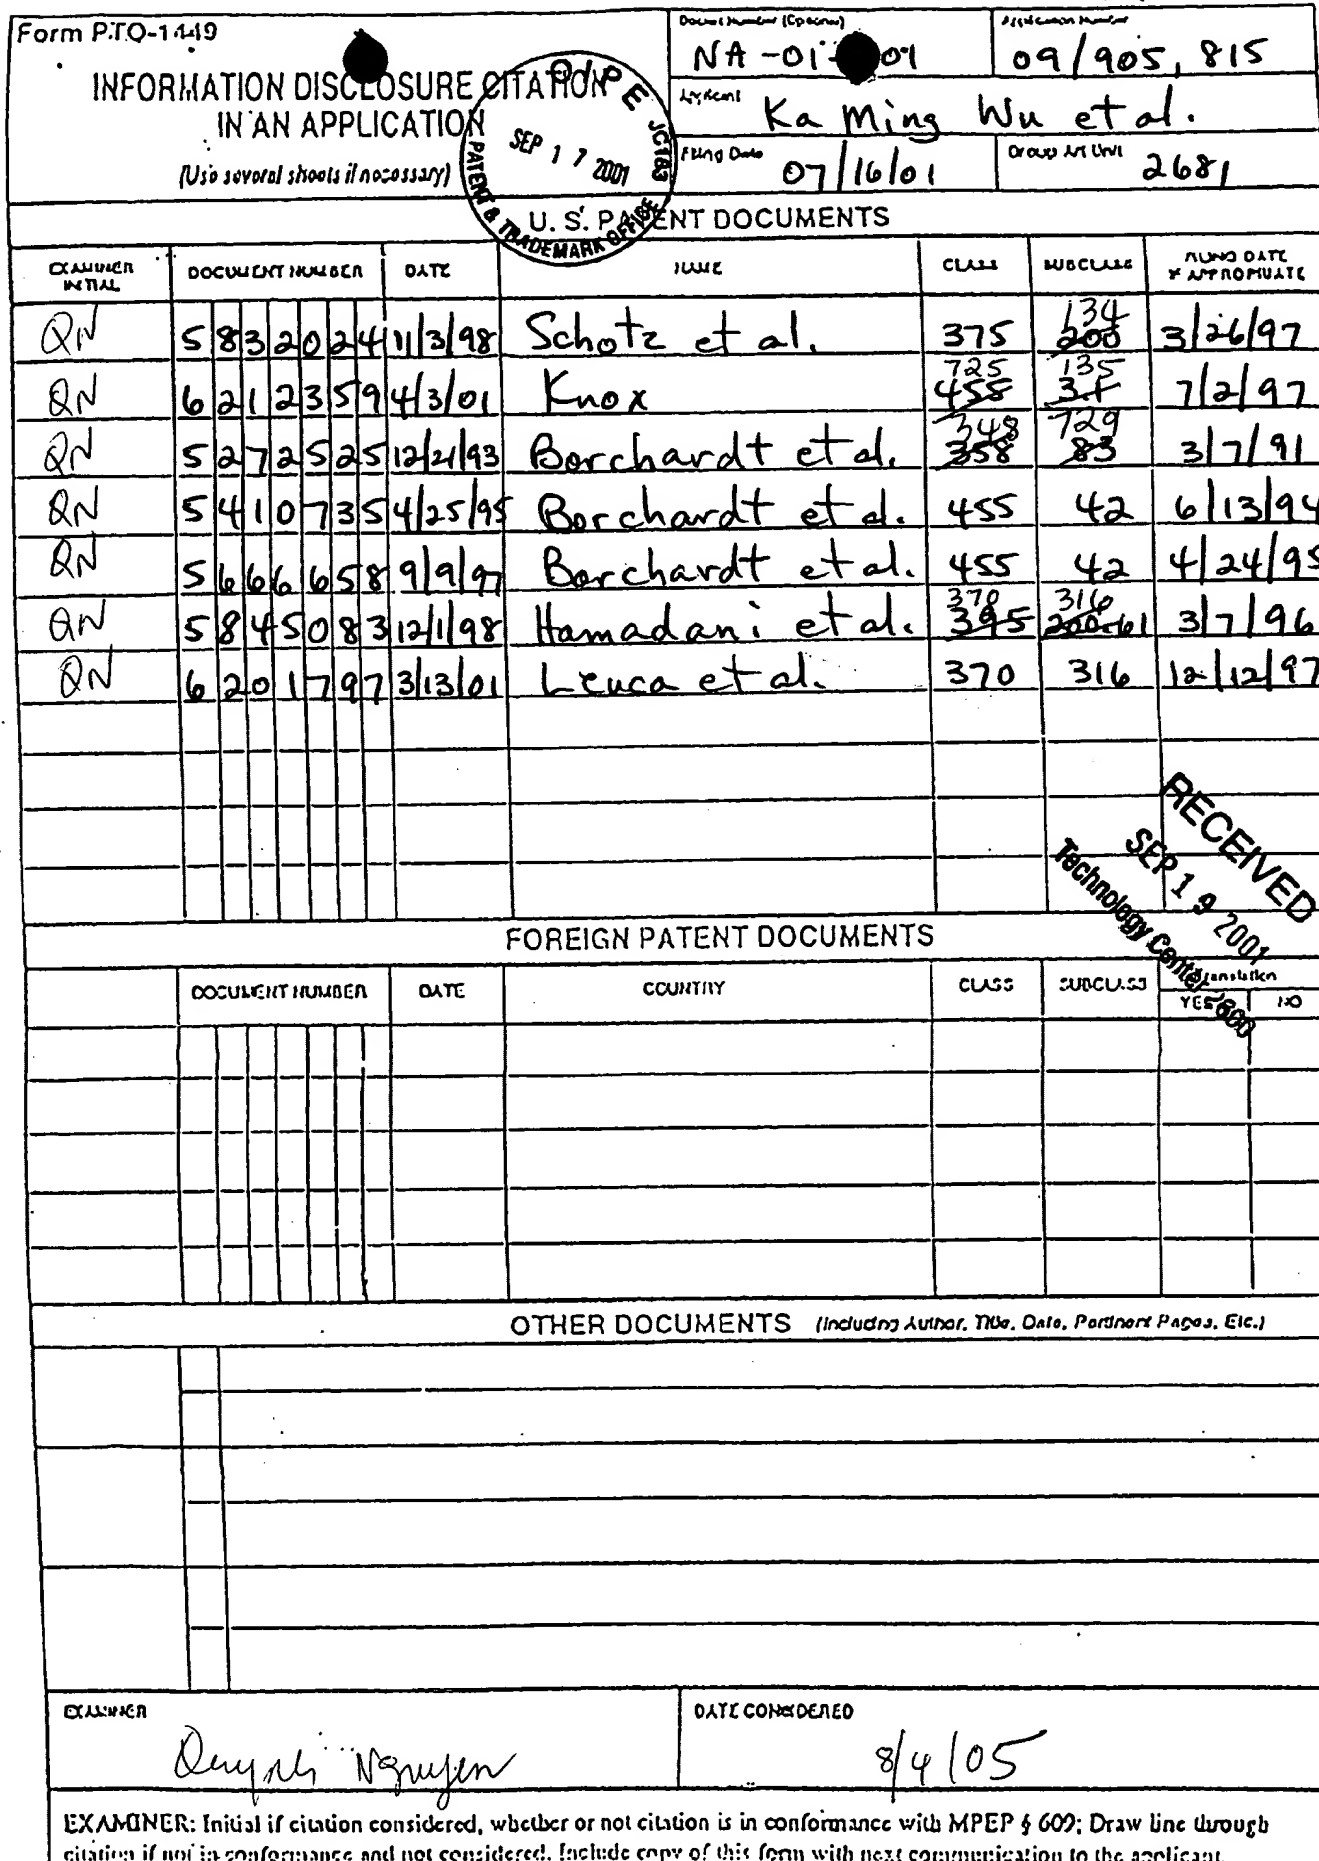 Form PTO-1449
INFORMATION DISCLOSURE CITATION
IN AN APPLICATION
(Use several sheets if necessary)
OIPE JC183
SEP 17 2001
PATENT & TRADEMARK OFFICE
Docket Number (Optional)
NA-01- 01
Application Number
09/905,815
Applicant
Ka Ming Wu et al.
Filing Date
07/16/01
Group Art Unit
2681
U. S. PATENT DOCUMENTS
EXAMINER INITIAL DOCUMENT NUMBER DATE NAME CLASS SUBCLASS FILING DATE IF APPROPRIATE
QN 5832024 11/3/98 Schotz et al. 375 200 134 3/26/97
QN 6212359 4/3/01 Knox 455 725 3.1 135 7/2/97
QN 5272525 12/21/93 Borchardt et al. 358 348 83 729 3/7/91
QN 5410735 4/25/95 Borchardt et al. 455 42 6/13/94
QN 5666658 9/9/97 Borchardt et al. 455 42 4/24/95
QN 5845083 12/1/98 Hamadani et al. 395 370 200.61 316 3/7/96
QN 6201797 3/13/01 Leuca et al. 370 316 12/12/97
RECEIVED
SEP 19 2001
Technology Center 2600
FOREIGN PATENT DOCUMENTS
DOCUMENT NUMBER DATE COUNTRY CLASS SUBCLASS Translation
YES NO
OTHER DOCUMENTS (Including Author, Title, Date, Pertinent Pages, Etc.)
EXAMINER
Nguyen
DATE CONSIDERED
8/4/05
EXAMINER: Initial if citation considered, whether or not citation is in conformance with MPEP § 609; Draw line through
citation if not in conformance and not considered. Include copy of this form with next communication to the applicant.